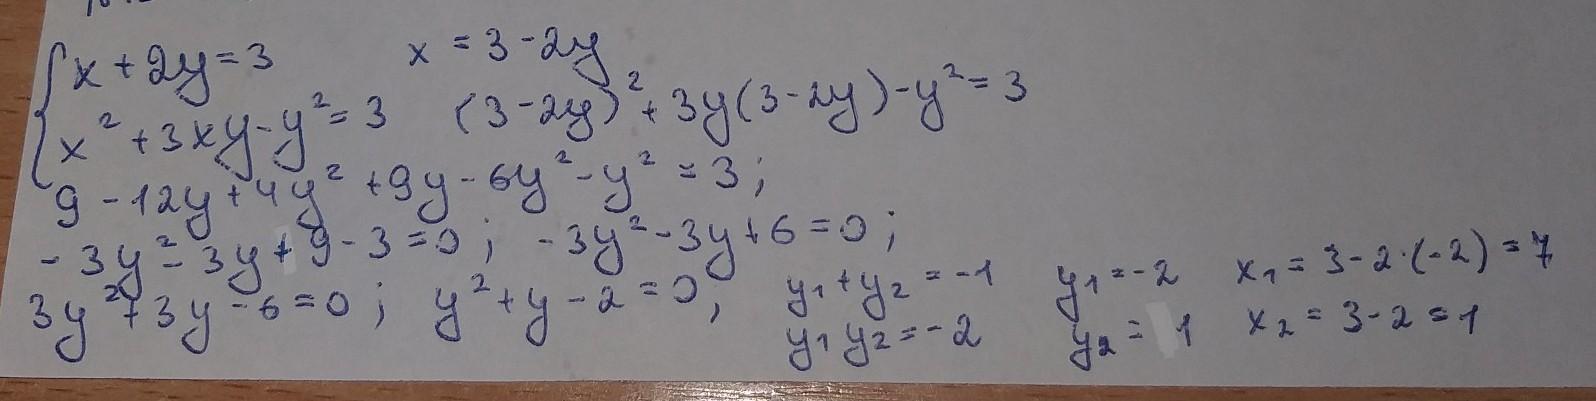 x + 2y = 3    x = 3 - 2y
x² + 3xy - y² = 3    (3 - 2y)² + 3y(3 - 2y) - y² = 3
9 - 12y + 4y² + 9y - 6y² - y² = 3;
-3y² - 3y + 9 - 3 = 0; -3y² - 3y + 6 = 0;
3y² + 3y - 6 = 0; y² + y - 2 = 0; y₁ + y₂ = -1    y₁ = -2    x₁ = 3 - 2·(-2) = 7
y₁ y₂ = -2    y₂ = 1    x₂ = 3 - 2 = 1